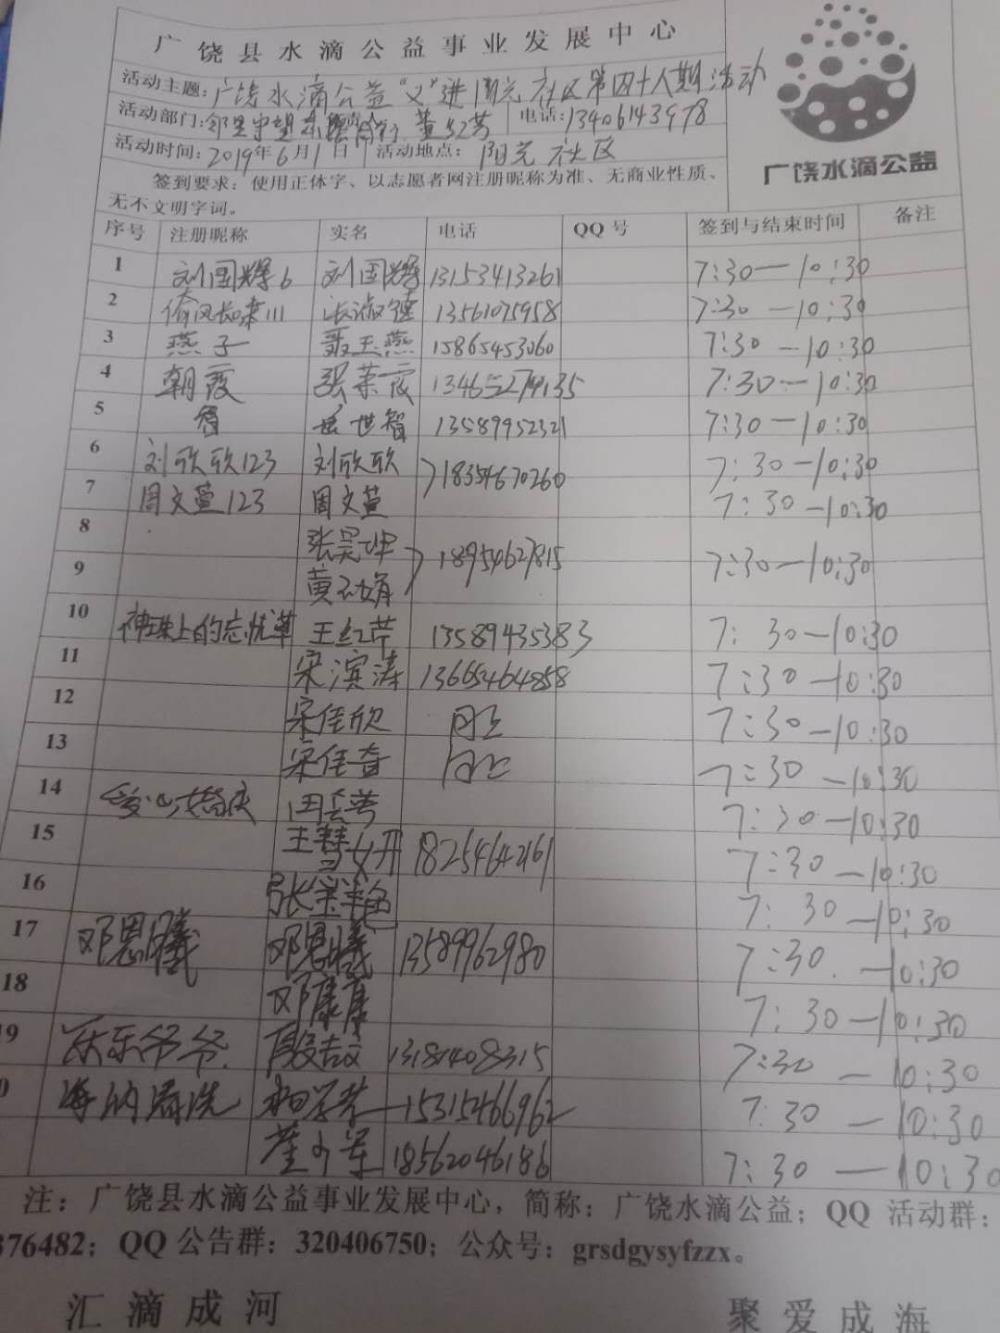 广饶县水滴公益事业发展中心
活动主题:广饶水滴公益"义"进阳光社区第四十八期活动
活动部门:邻里守望 电话:13406143978
活动时间:2019年6月1日 活动地点:阳光社区
签到要求:使用正体字、以志愿者网注册昵称为准、无商业性质、
无不文明字词。
广饶水滴公益
序号 注册昵称 实名 电话 QQ号 签到与结束时间 备注
1 刘国辉6 刘国辉 13153413261 7:30—10:30
2 13561075958 7:30—10:30
3 燕子 聂玉燕 15865453060 7:30—10:30
4 朝霞 张荣霞 7:30—10:30
5 智 岳世智 13589952321 7:30—10:30
6 刘欣欣123 刘欣欣 18354670260 7:30—10:30
7 周文萱123 周文萱 7:30—10:30
8 张昊坤 18954627815 7:30—10:30
9 黄玉娟
10 神珠上的忘忧草 王红芹 13589435383 7:30—10:30
11 宋滨涛 13665464858 7:30—10:30
12 宋佳欣 同上 7:30—10:30
13 宋佳奇 同上 7:30—10:30
14 爱心婚庆 7:30—10:30
15 18254642161 7:30—10:30
16 7:30—10:30
17 邓思曦 邓思曦 13589962980 7:30—10:30
18 邓康康 7:30—10:30
19 乐乐爷爷 13181408315 7:30—10:30
0 15315466962 7:30—10:30
18562046186 7:30—10:30
注:广饶县水滴公益事业发展中心,简称:广饶水滴公益;QQ 活动群:
376482;QQ公告群:320406750;公众号:grsdgysyfzzx。
汇滴成河 聚爱成海